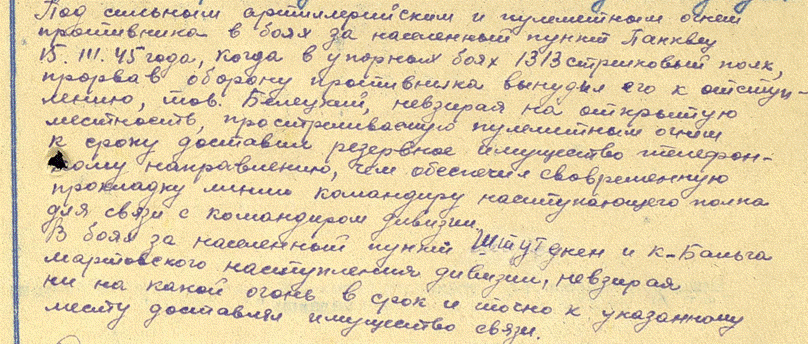 Под сильным артиллерийским и пулеметным огнем
противника в боях за населенный пункт Панквеу
15. III. 45 года, когда в упорных боях 1313 стрелковый полк,
прорвав оборону противника вынудил его к отступ-
лению, тов. Белецкий, невзирая на открытую
местность, простреливаемую пулеметным огнем
к сроку доставил резервное имущество телефон-
ному направлению, чем обеспечил своевременную
прокладку линии командиру наступающего полка
для связи с командиром дивизии.
В боях за населенный пункт Штутднен и к-Бальга
мартовского наступления дивизии, невзирая
ни на какой огонь в срок и точно к указанному
месту доставлял имущество связи.